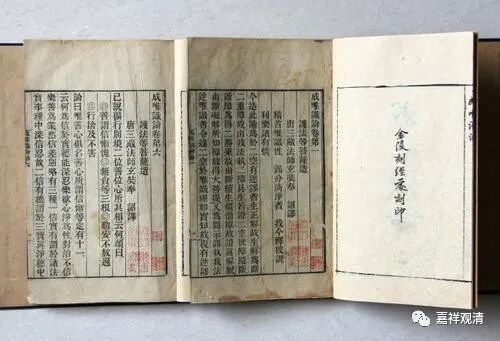 金陵刻經處刻印
成唯識論卷第一
護法等菩薩造
唐三藏法師玄奘奉 詔譯
稽首唯識性 滿分清淨者 我今釋彼說
利樂諸有情
今造此論爲於二空有迷謬者生正解故生解爲斷
二重障故由我法執二障具生若證二空彼障隨斷
斷障爲得二勝果故由斷續生煩惱障故證眞解脫
由斷礙解所知障故得大菩提又爲開示謬執我法
迷唯識者令達二空於唯識理如實知故復有迷謬
成唯識論卷第六
護法等菩薩造
唐三藏法師玄奘奉 詔譯
已說徧行別境二位善位心所其相云何頌曰
善謂信慚愧 無貪等三根 勤安不放逸
行捨及不害
論曰唯善心俱名善心所謂信慚等定有十一
云何爲信於實德能深忍樂欲心淨爲性對治不信
樂善爲業然信差別略有三種一信實有謂於諸法
實事理中深信忍故二信有德謂於三寶眞淨德中
嘉祥观清